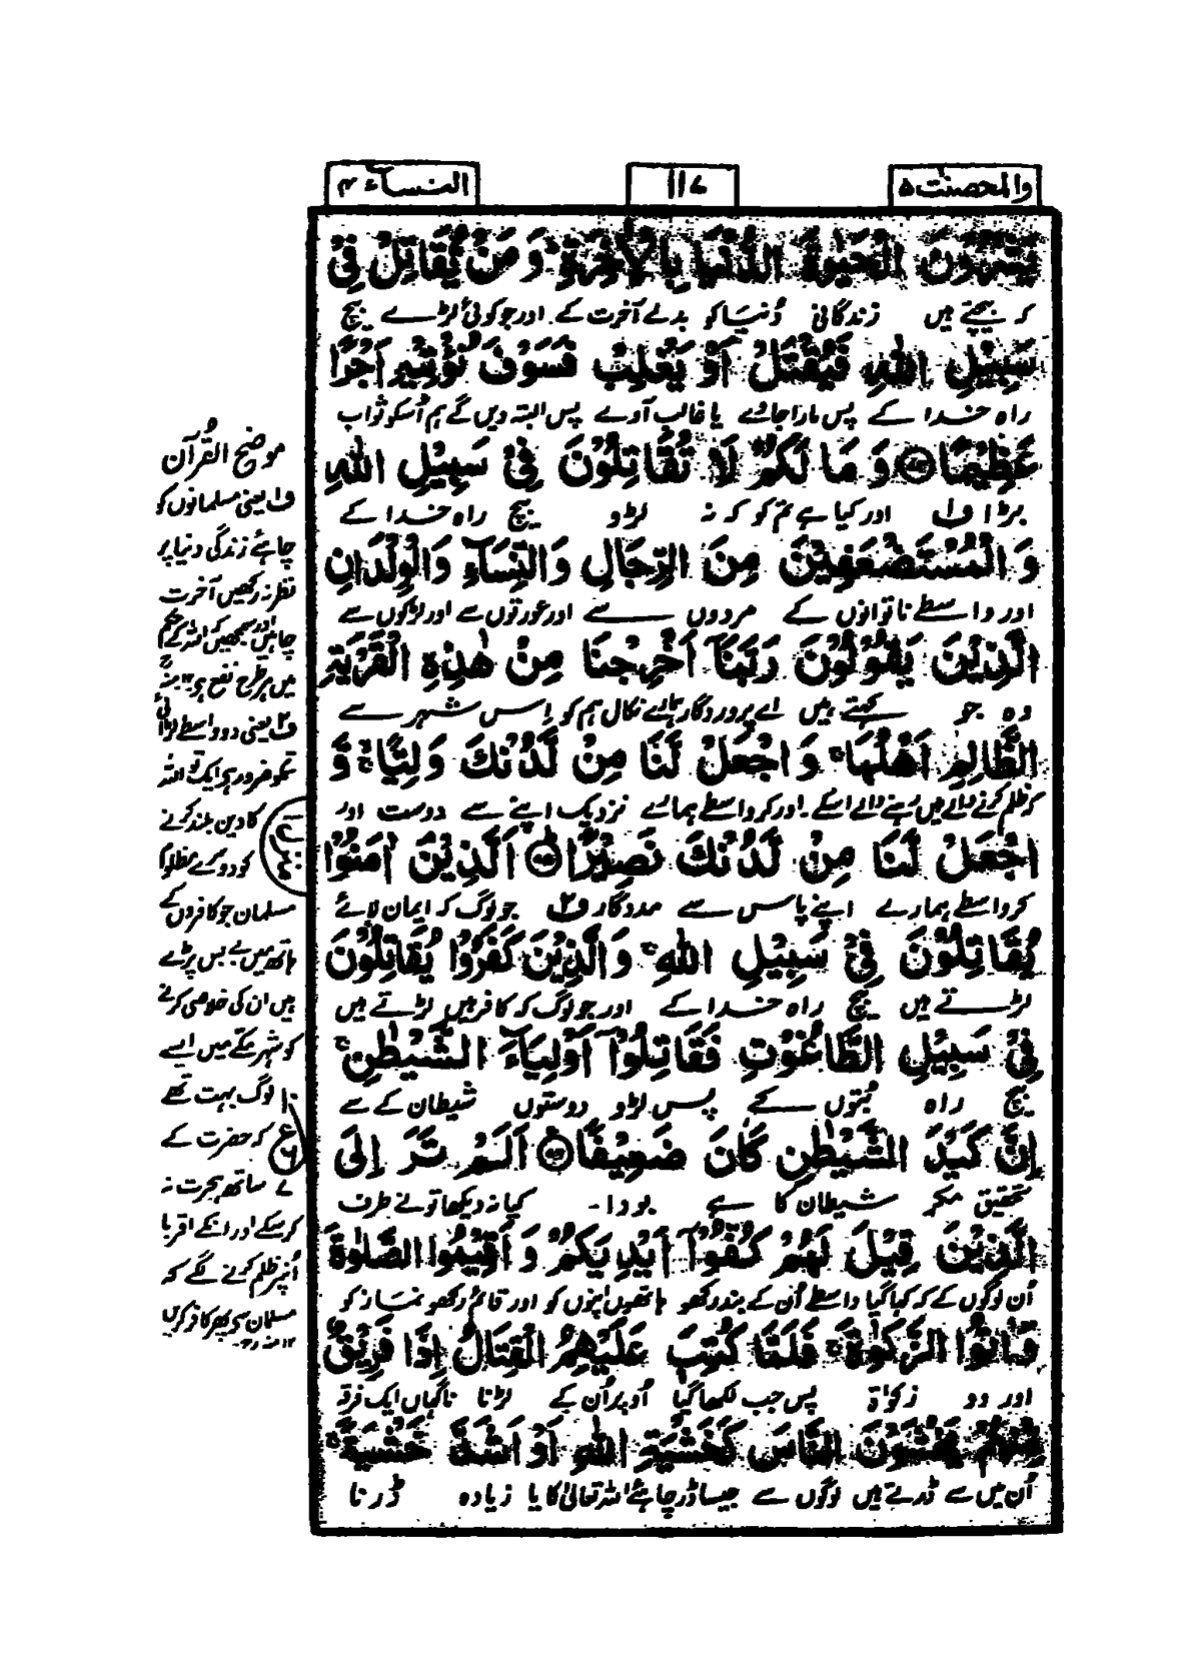 والمحصنت ۵
۱۱۷
النسآء ۴
يَشْرُوْنَ الْحَيٰوةَ الدُّنْيَا بِالْاٰخِرَةِ ؕ وَ مَنْ يُّقَاتِلْ فِيْ
کہ بیچتے ہیں زندگانی دُنیا کو بدلے آخرت کے۔ اور جو کوئی لڑے بیچ
سَبِيْلِ اللّٰهِ فَيُقْتَلْ اَوْ يَغْلِبْ فَسَوْفَ نُؤْتِيْهِ اَجْرًا
راہ خدا کے پس مارا جاوے یا غالب آوے پس البتہ دیں گے ہم اُسکو ثواب
عَظِيْمًا وَ مَا لَكُمْ لَا تُقَاتِلُوْنَ فِيْ سَبِيْلِ اللّٰهِ
بڑا ف۱ اور کیا ہے تم کو کہ نہ لڑو بیچ راہ خدا کے
وَ الْمُسْتَضْعَفِيْنَ مِنَ الرِّجَالِ وَ النِّسَآءِ وَ الْوِلْدَانِ
اور واسطے ناتوانوں کے مردوں سے اور عورتوں سے اور لڑکوں سے
الَّذِيْنَ يَقُوْلُوْنَ رَبَّنَآ اَخْرِجْنَا مِنْ هٰذِهِ الْقَرْيَةِ
وہ جو کہتے ہیں اے پروردگار ہمارے نکال ہم کو اِس شہر سے
الظَّالِمِ اَهْلُهَا ۚ وَ اجْعَلْ لَّنَا مِنْ لَّدُنْكَ وَلِيًّا ۚ وَّ
کہ ظلم کرنے والے ہیں رہنے والے اسکے۔ اور کر واسطے ہمارے نزدیک اپنے سے دوست اور
اجْعَلْ لَّنَا مِنْ لَّدُنْكَ نَصِيْرًا اَلَّذِيْنَ اٰمَنُوْا
کر واسطے ہمارے اپنے پاس سے مددگار ف۲ جو لوگ کہ ایمان لائے
يُقَاتِلُوْنَ فِيْ سَبِيْلِ اللّٰهِ ۚ وَ الَّذِيْنَ كَفَرُوْا يُقَاتِلُوْنَ
لڑتے ہیں بیچ راہ خدا کے اور جو لوگ کہ کافر ہیں لڑتے ہیں
فِيْ سَبِيْلِ الطَّاغُوْتِ فَقَاتِلُوْٓا اَوْلِيَآءَ الشَّيْطٰنِ ۚ
بیچ راہ بُتوں کے پس لڑو دوستوں شیطان کے سے
اِنَّ كَيْدَ الشَّيْطٰنِ كَانَ ضَعِيْفًا اَلَمْ تَرَ اِلَى
تحقیق مکر شیطان کا ہے بودا۔ کیا نہ دیکھا تونے طرف
الَّذِيْنَ قِيْلَ لَهُمْ كُفُّوْٓا اَيْدِيَكُمْ وَ اَقِيْمُوا الصَّلٰوةَ
اُن لوگوں کے کہ کہا گیا واسطے اُن کے بند رکھو ہاتھوں اپنوں کو اور قائم رکھو نماز کو
وَ اٰتُوا الزَّكٰوةَ ۚ فَلَمَّا كُتِبَ عَلَيْهِمُ الْقِتَالُ اِذَا فَرِيْقٌ
اور دو زکوٰۃ پس جب لکھا گیا اُوپر اُن کے لڑنا ناگہاں ایک فرقہ
مِّنْهُمْ يَخْشَوْنَ النَّاسَ كَخَشْيَةِ اللّٰهِ اَوْ اَشَدَّ خَشْيَةً ۚ
اُن میں سے ڈرتے ہیں لوگوں سے جیسا ڈر چاہئے اللہ تعالیٰ کا یا زیادہ ڈرنا
موضح القرآن
ف۱ یعنی مسلمانوں کو
چاہئے زندگی دنیا پر
نظر نہ رکھیں آخرت
چاہیں اور سمجھیں کہ اللہ کے حکم
میں ہر طرح نفع ہے ۱۲ منہ
ف۲ یعنی دو واسطے لڑائی
تمکو ضرور ہے ایک تو اللہ
کا دین بلند کرنے
کو دوسرے مظلوم
مسلمان جو کافروں کے
ہاتھ میں بے بس پڑے
ہیں ان کی خلاصی کرنے
کو شہر مکے میں ایسے
لوگ بہت تھے
کہ حضرت کے
ساتھ ہجرت نہ
کر سکے اور انکے اقربا
اُنپر ظلم کرنے لگے کہ
مسلمان سے پھر کافر کریں